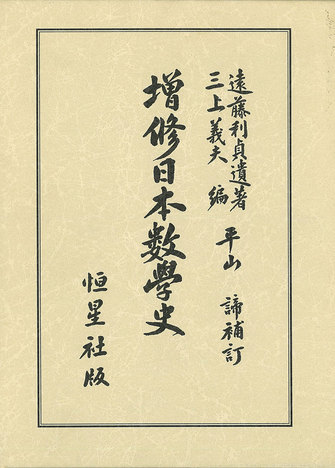 遠藤利貞遺著
三上義夫 編
平山 諦補訂
增修日本數學史
恒星社版